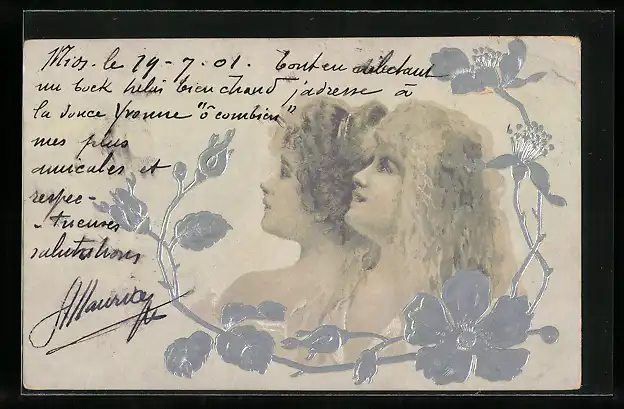 Mios. le 19-7.01. tout en délectant
un bock hélas bien chaud j'adresse à
la douce Yvonne "ô combien"
mes plus
amicales et
respec-
-tueuses
salutations